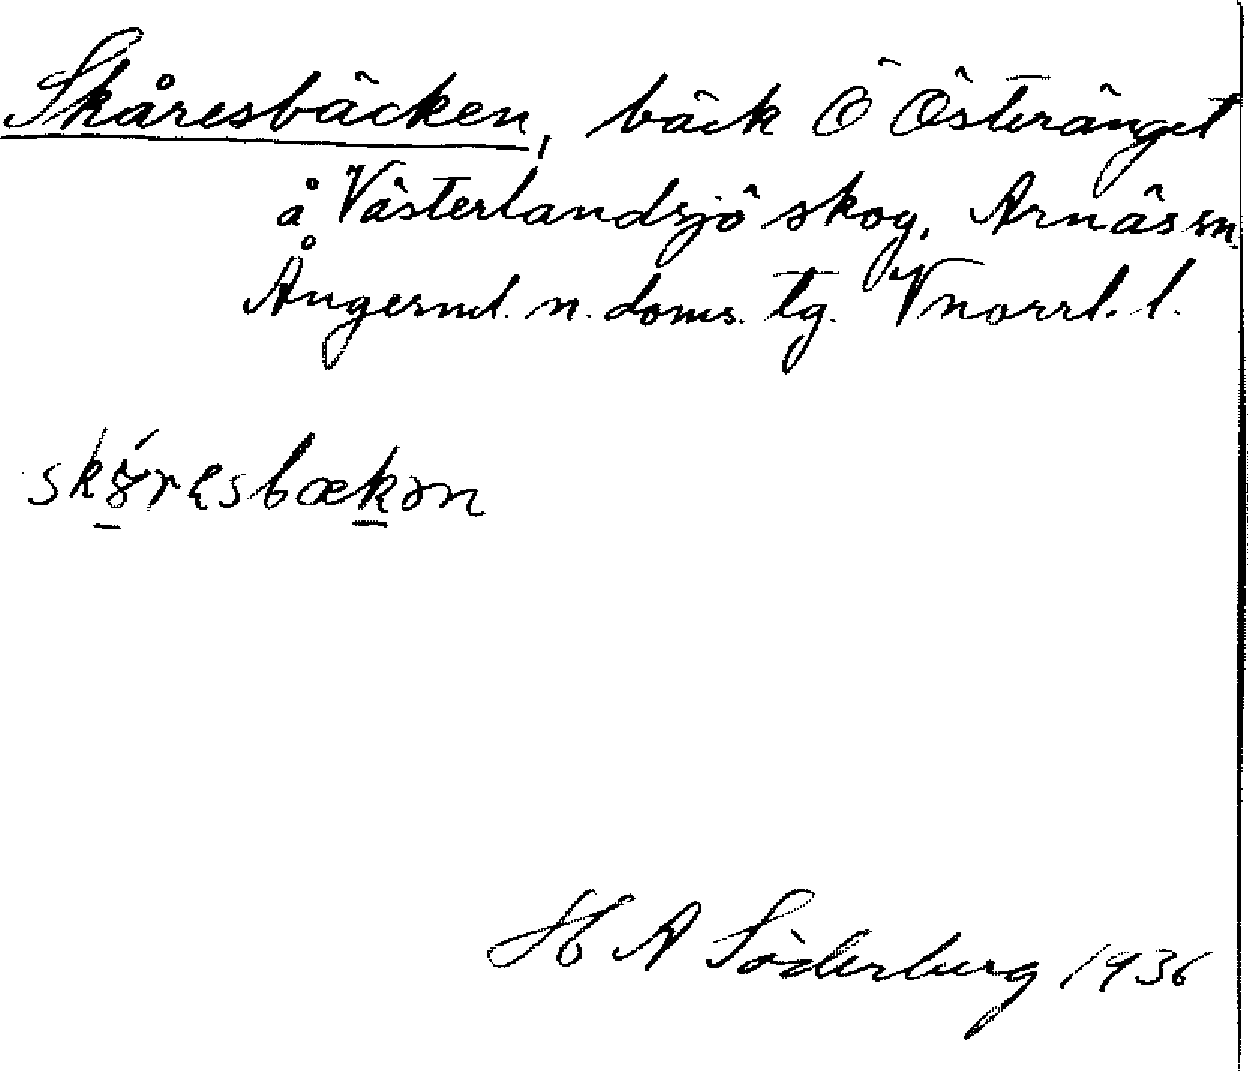 Skåresbäcken, bäck Ö Österänget
å Västerlandsjö skog, Arnäs sn
Ångerml. n. doms. tg. Vnorrl. l.
H A Söderberg 1936